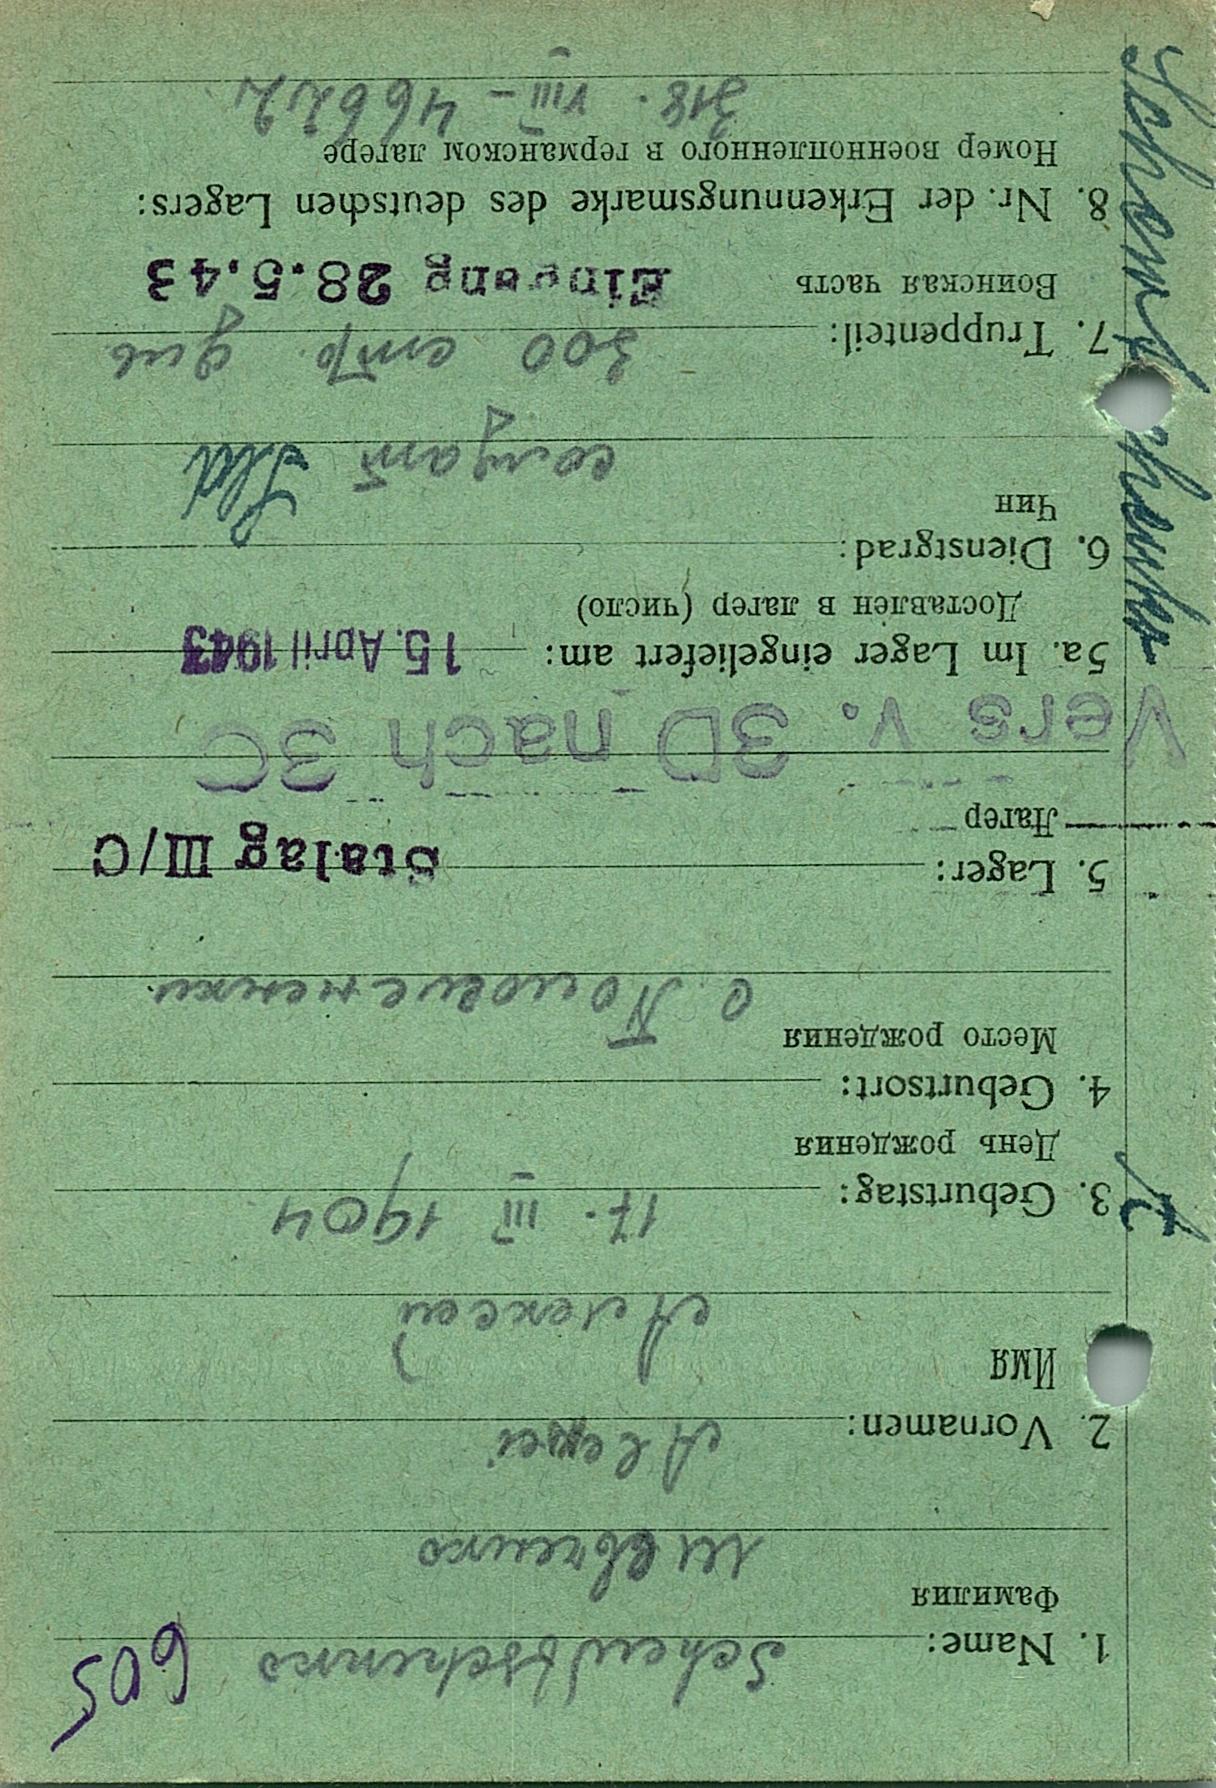 605
1. Name: Schewtschenko
Фамилия
Шевченко
2. Vornamen: Alexei
Имя
Алексей
3. Geburtstag: 17. III 1904
День рождения
4. Geburtsort:
Место рождения
с.
5. Lager: Stalag III/C
Лагер
Vers v. 3D nach 3C
5a. Im Lager eingeliefert am: 15. April 1943
Доставлен в лагер (число)
6. Dienstgrad:
Чин
солдат Sld
7. Truppenteil: 300 стр. див
Воинская часть
Eingang 28.5.43
8. Nr. der Erkennungsmarke des deutschen Lagers:
Номер военнопленного в германском лагере
318. VIII - 46622